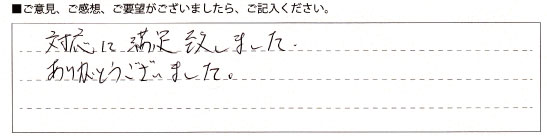 ■ご意見、ご感想、ご要望がございましたら、ご記入ください。
対応に満足致しました.
ありがとうございました。